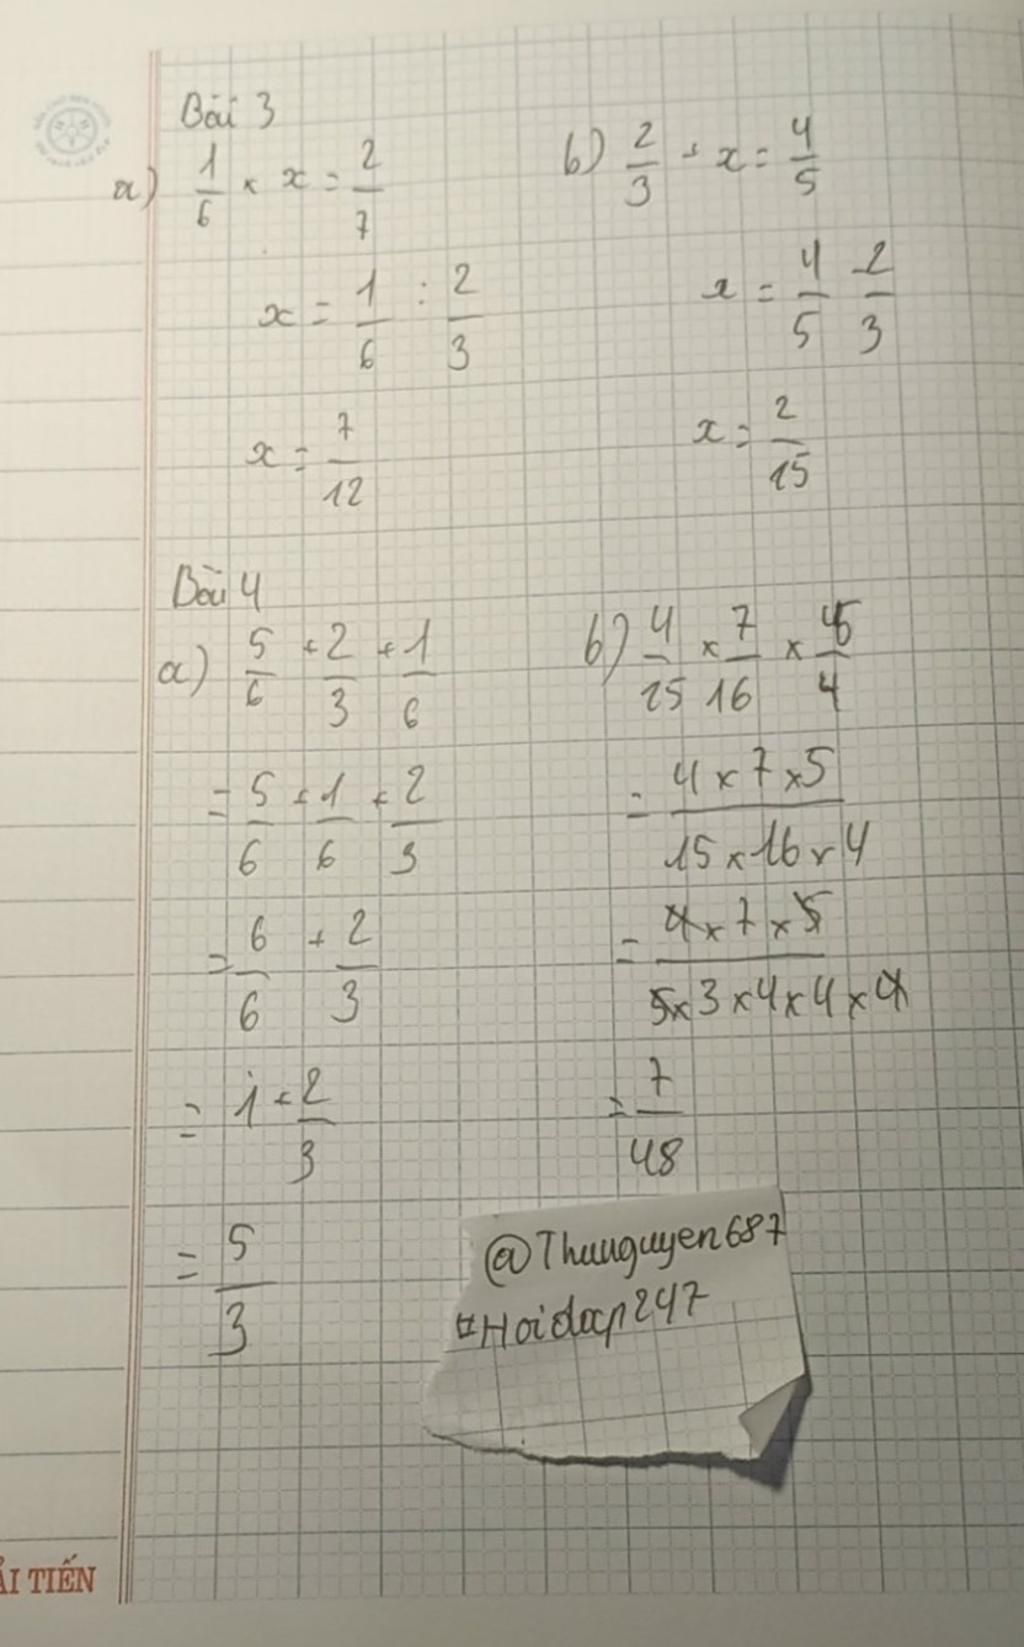 Bài 3
a) 1/6 × x = 2/7
x = 1/6 : 2/3
x = 7/12
b) 2/3 + x = 4/5
x = 4/5 - 2/3
x = 2/15
Bài 4
a) 5/6 + 2/3 + 1/6
= 5/6 + 1/6 + 2/3
= 6/6 + 2/3
= 1 + 2/3
= 5/3
b) 4/15 × 7/16 × 5/4
= 4 × 7 × 5 / 15 × 16 × 4
= 4 × 7 × 5 / 5 × 3 × 4 × 4 × 4
= 7/48
@Thuuguyen687
#Hoidap247
ẢI TIẾN